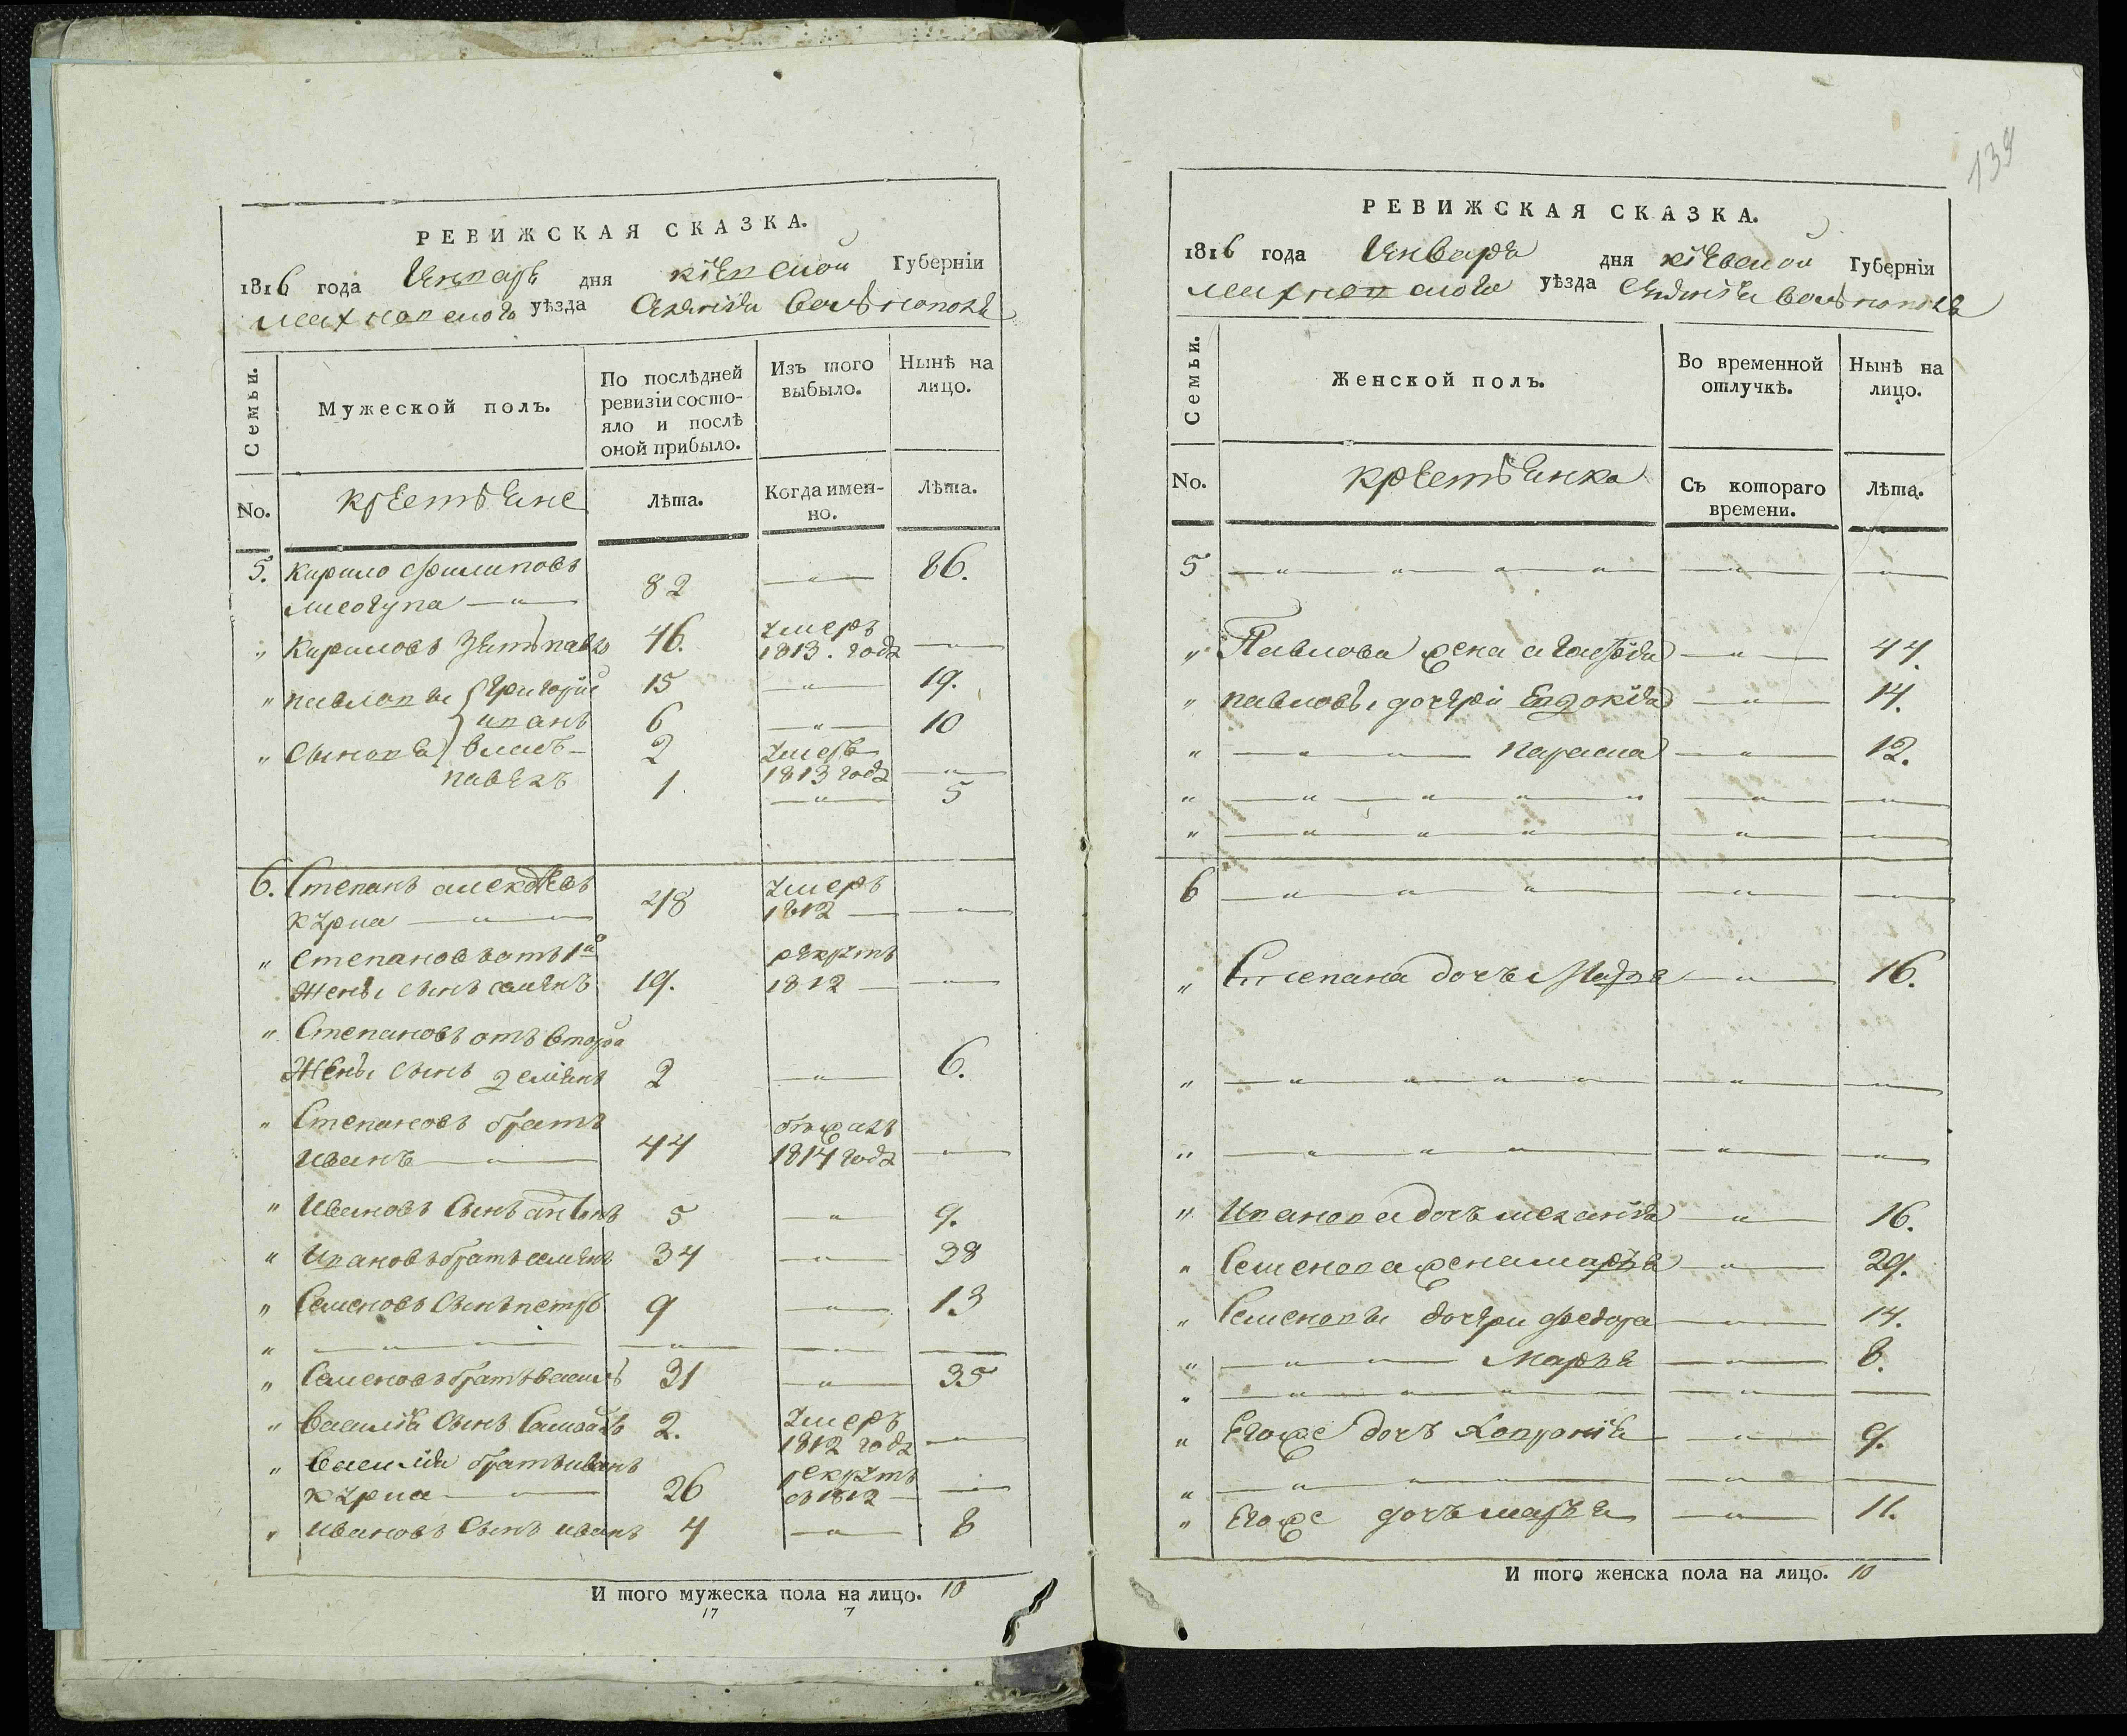 РЕВИЖСКАЯ СКАЗКА.
1816 года Генваря дня кіевской Губерніи
махновского уѣзда
Семьи.
Мужеской полъ.
По послѣдней
ревизіи состо-
яло и послѣ
оной прибыло.
Изъ того
выбыло.
Нынѣ на
лицо.
No.
крестяне
Лѣта.
Когда имен-
но.
Лѣта.
5. Кирило Филиповъ 86.
лисогупа 82
" Кириловъ зять павло 46. умеръ 1813. года
" павловы григорий 15 19.
иванъ 6 10
" сыновя власъ 2 умеръ 1813 года
павелъ 1 5
6. Степанъ алексѣевъ
курка 48 умеръ 1812
" степановъ отъ 1й
жены сынъ семенъ 19. рекрутъ 1812
" Степановъ отъ второй
жены сынъ демянъ 2 6.
" Степановъ братъ
иванъ 44 бѣжалъ 1814 года
" Ивановъ сынъ антонъ 5 9.
" Ивановъ братъ семенъ 34 38
" Семеновъ сынъ петръ 9 13
"
" Семеновъ братъ василь 31 35
" василия сынъ самойлъ 2. умеръ 1812 года
" василия братъ иванъ
курка 26 рекрутъ въ 1812
" ивановъ сынъ иванъ 4 8
И того мужеска пола на лицо. 10
17 7
139
РЕВИЖСКАЯ СКАЗКА.
1816 года Генваря дня кіевской Губерніи
махновского уѣзда
Семьи.
Женской полъ.
Во временной
отлучкѣ.
Нынѣ на
лицо.
No.
крестянка
Съ котораго
времени.
Лѣта.
5
" Павлова жена агафия 44.
" павловы дочери Евдокия 14.
" параска 12.
"
"
6
" Степана дочь Марья 16.
"
"
" Иванова дочь меланія 16.
" Семенова жена марья 29.
" Семеновы дочери федора 14.
" Марья 8.
"
" Егоже дочь Хопронія 9.
"
" Егоже дочь марья 11.
И того женска пола на лицо. 10